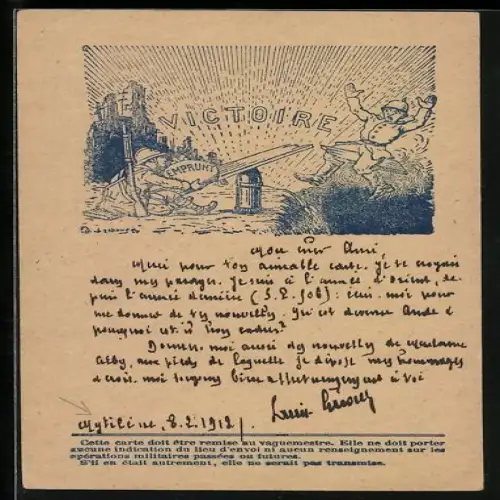 VICTOIRE
EMPRUNT
Mon cher Ami,
Merci pour ton aimable carte. Je te croyais
dans mes parages. Je suis à l'armée d'Orient, de-
puis l'année dernière (S.P. 506) : écris-moi pour
me donner de tes nouvelles. Qu'est devenu Aude &
pourquoi est-il
Donnes-moi aussi des nouvelles de Madame
aux pieds de laquelle je dépose mes hommages
& crois-moi toujours bien affectueusement à toi
Mytilène, 8.2.1918/.
Cette carte doit être remise au vaguemestre. Elle ne doit porter
aucune indication du lieu d'envoi ni aucun renseignement sur les
opérations militaires passées ou futures.
S'il en était autrement, elle ne serait pas transmise.